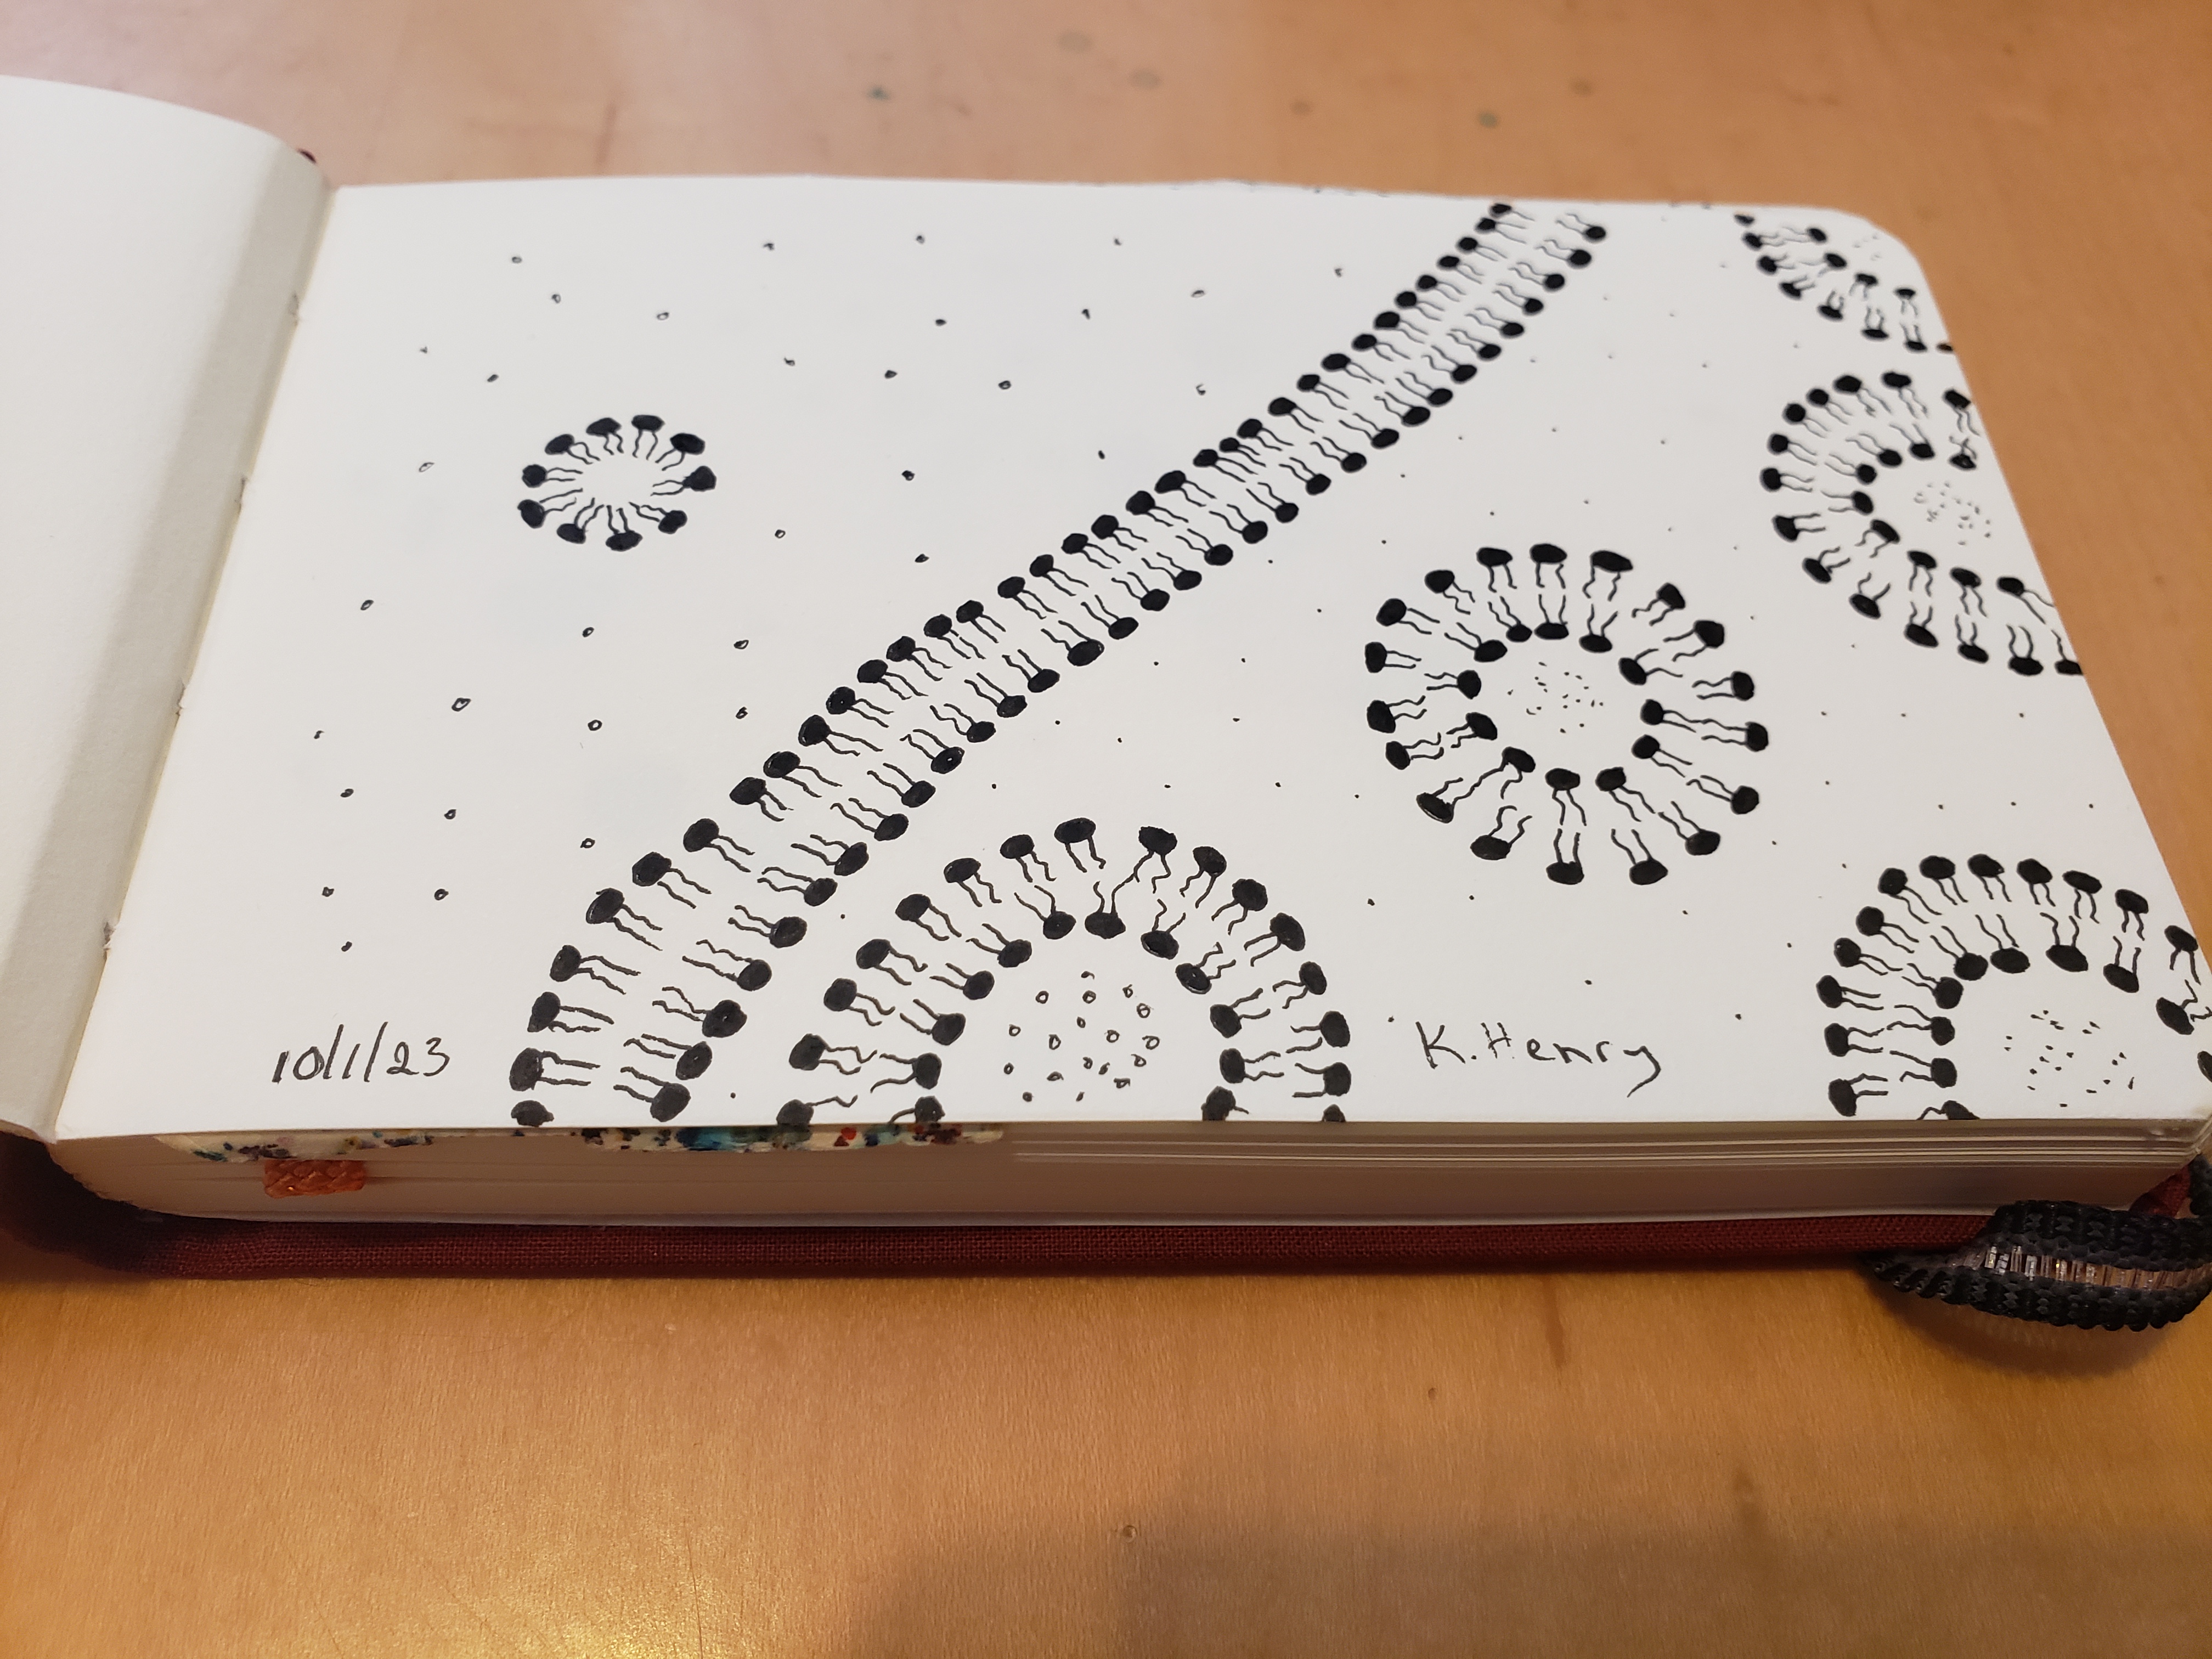 10/1/23
K. Henry